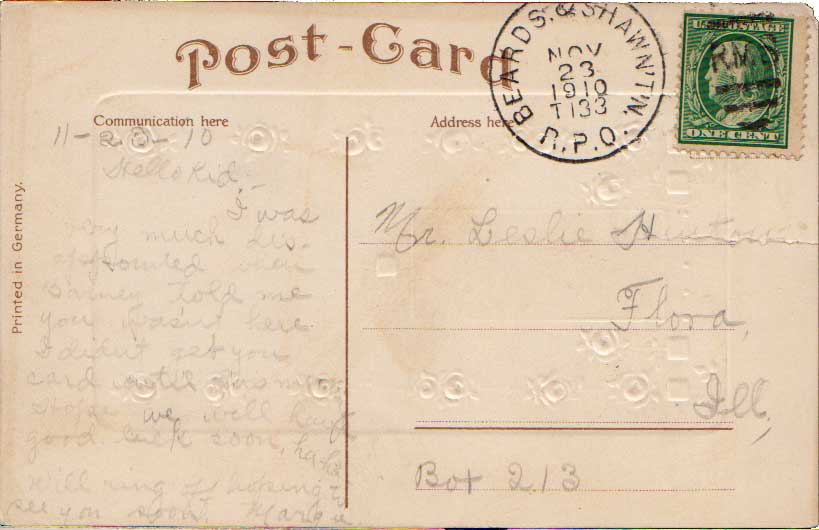 Post-Card
Communication here
Address here
Printed in Germany.
BEARDS. & SHAWN'T'N.
NOV
23
1910
T133
R.P.O.
U.S. POSTAGE
R.M.S
ONE CENT
11-23-10
Hello Kid,-
I was
very much dis-
appointed when
told me
you wasn't here
I didn't get you
card until this
we will have
good luck soon, ha ha
Will ring off hoping to
see you soon. Margie
Mr. Leslie
Flora,
Ill,
Box 213